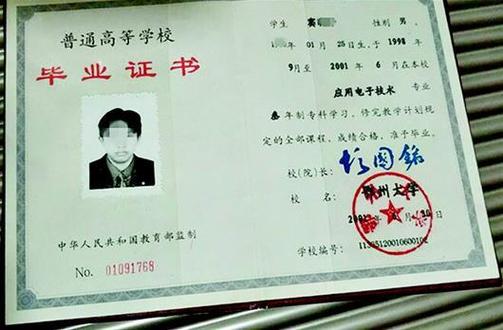 普通高等学校
毕业证书
中华人民共和国教育部监制
No. 01091768
学生 窦 性别 男,
01月25日生,于1998
9月至 2001 年 6 月在本校
应用电子技术 专业
叁年制专科学习,修完教学计划规
定的全部课程,成绩合格,准予毕业。
校(院)长:
校 名: 鄂州大学
学校编号: